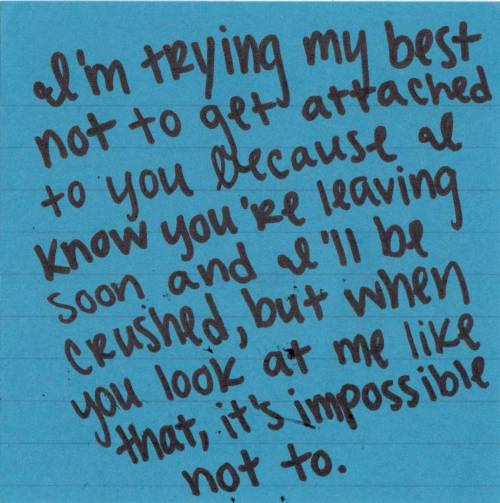 I'm trying my best
not to get attached
to you because I
know you're leaving
soon and I'll be
crushed, but when
you look at me like
that, it's impossible
not to.